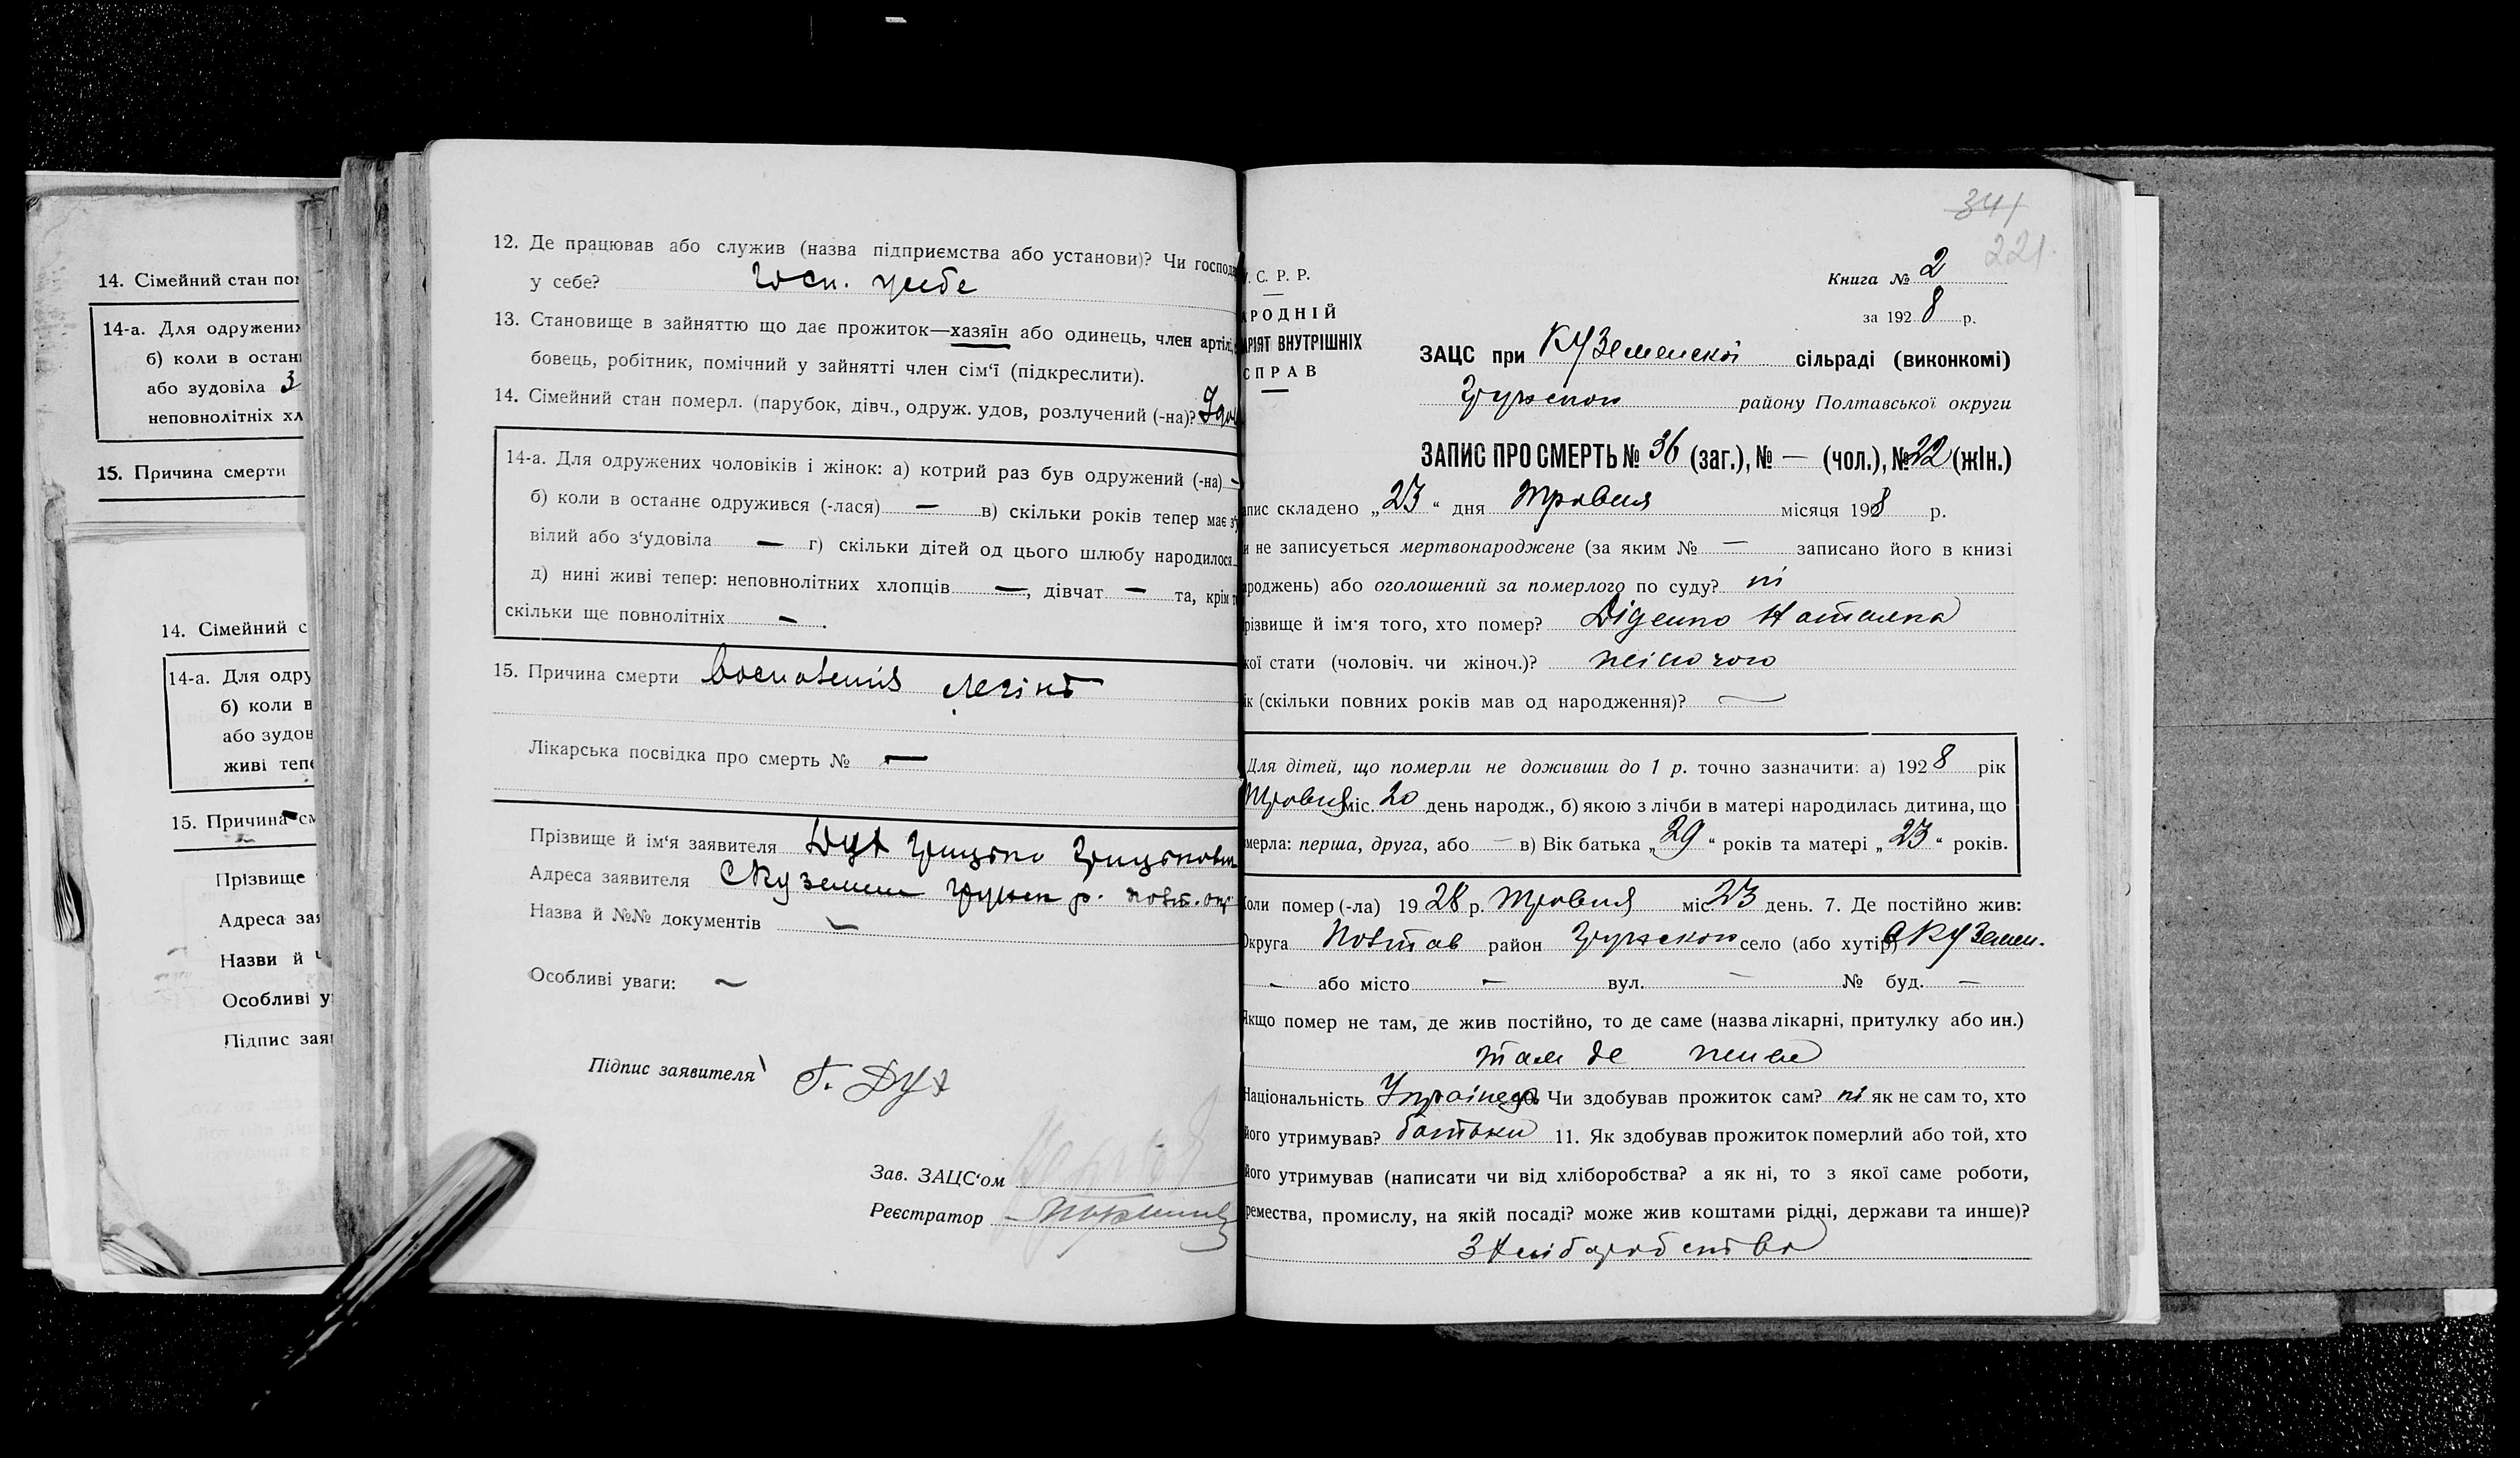 14. Сімейний стан пом
14-а. Для одружених
б) коли в останн
або зудовіла З
неповнолітніх хл
15. Причина смерти
14. Сімейний с
14-а. Для одру
б) коли в
або зудов
живі тепе
15. Причина см
Прізвище
Адреса зая
Назви й
Особливі у
Підпис зая
12. Де працював або служив (назва підприємства або установи)? Чи господа
у себе? госп. у себе
13. Становище в зайняттю що дає прожиток—хазяїн або одинець, член артілі,
бовець, робітник, помічний у зайнятті член сім'ї (підкреслити).
14. Сімейний стан померл. (парубок, дівч., одруж. удов, розлучений (-на)?
14-а. Для одружених чоловіків і жінок: а) котрий раз був одружений (-на) —
б) коли в останнє одружився (-лася) — в) скільки років тепер має з'у
вілий або з'удовіла — г) скільки дітей од цього шлюбу народилося
д) нині живі тепер: неповнолітних хлопців —, дівчат — та, крім т
скільки ще повнолітніх — .
15. Причина смерти легінь
Лікарська посвідка про смерть № —
Прізвище й ім'я заявителя Дух Грицько Грицькови
Адреса заявителя с Куземин р. Полт. окр
Назва й №№ документів —
Особливі уваги: ~
Підпис заявителя Г. Дух
Зав. ЗАЦС'ом
Реєстратор
341
221.
У. С. Р. Р.
АРОДНІЙ
АРІЯТ ВНУТРІШНІХ
СПРАВ
Книга № 2
за 1928 р.
ЗАЦС при Куземенскої сільраді (виконкомі)
Грунском району Полтавської округи
ЗАПИС ПРО СМЕРТЬ № 36 (заг.), № — (чол.), № 22 (жін.)
апис складено „23" дня Травня місяця 1928 р.
и не записується мертвонароджене (за яким № — записано його в книзі
ароджень) або оголошений за померлого по суду? ні
різвище й ім'я того, хто помер? Діденко Наталка
кої стати (чоловіч. чи жіноч.)? жіночого
ік (скільки повних років мав од народження)? —
Для дітей, що померли не доживши до 1 р. точно зазначити: а) 1928 рік
Травня міс. 20 день народж., б) якою з лічби в матері народилась дитина, що
мерла: перша, друга, або — в) Вік батька „29" років та матері „23" років.
Коли помер (-ла) 1928 р. Травня міс. 23 день. 7. Де постійно жив:
Округа Полтав район Грунском село (або хутір) с Куземен.
— або місто — вул. — № буд. —
Якщо помер не там, де жив постійно, то де саме (назва лікарні, притулку або ин.)
там де жила
Національність Українець Чи здобував прожиток сам? ні як не сам то, хто
його утримував? батьки 11. Як здобував прожиток померлий або той, хто
його утримував (написати чи від хліборобства? а як ні, то з якої саме роботи,
ремества, промислу, на якій посаді? може жив коштами рідні, держави та инше)?
З хліборобства